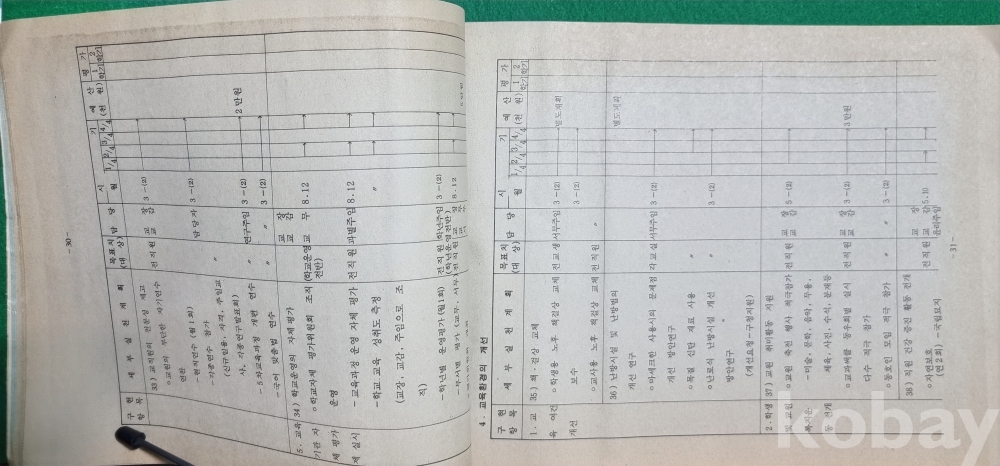 - 30 -
구 현 항 목
세 부 실 천 계 획
목표치 (대 상)
담 당
시 월
기
1/4 2/4 3/4 4/4
예 산 (천 원)
평 가
1학기 2학기
33) 교직원의 전문성 제고
전 직 원
교 장
교 감
3 - (2)
○교원의 부단한 자기연수
연찬
- 현직연수 (월 1회)
담 당 자
3 - (2)
각종연수 참가
3 - (2)
연구주임
2 만원
- 5차교육과정 개편 연수
3 - (2)
- 교어 맞춤법 연수
5. 교육
기관 자
체 평가
제 실시
34) 학교운영의 자체평가
○학교자체 평가위원회 조직
(학교운영
전반)
교 장
교 감
교 무
8. 12
운영
- 교육과정 운영 자체 평가
전 직 원
과별주임
8. 12
- 학교 교육 성취도 측정
〃
(교장, 교감, 주임으로 조
직)
- 학년별 운영평가 (월 1회)
전 직 원
학년주임
3 - (2)
8. 12
4. 교육환경의 개선
구 현 항 목
세 부 실 천 계 획
목표치 (대 상)
담 당
시 월
기
1/4 2/4 3/4 4/4
예 산 (천 원)
평 가
1학기 2학기
1. 교
육 여건
개선
35) 책·걸상 교체
○학생용 노후 책걸상 교체
전 교 생
서무주임
3 - (2)
별도계획
○교사용 노후 책걸상 교체
전 직 원
〃
3 - (2)
보수
36) 난방시설 및 난방법의
개선 연구
별도계획
각 교 실
서무주임
3 - (2)
개선 방안연구
○목질 신탄 재료 사용
○난로식 난방시설 개선
〃
3 - (2)
방안연구
(개선요청-구청지원)
2. 학생
및 교원
복지증
동 전개
37) 교원 취미활동 지원
○교원 축전 행사 적극참가
전 직 원
교 장
교 감
5 - (2)
- 미술, 문학, 음악, 무용,
체육, 사진, 수석, 분재등
○교과써클 동우회별 실시
〃
3 - (2)
3 만원
다수 적극 참가
○동호인 모임 적극 참가
〃
3 - (2)
38) 직원 건강 증진 활동 전개
○자연보호
(연 2회) - 국립묘지
전 직 원
교 장
교 감
윤리주임
5. 10
- 31 -
kobay